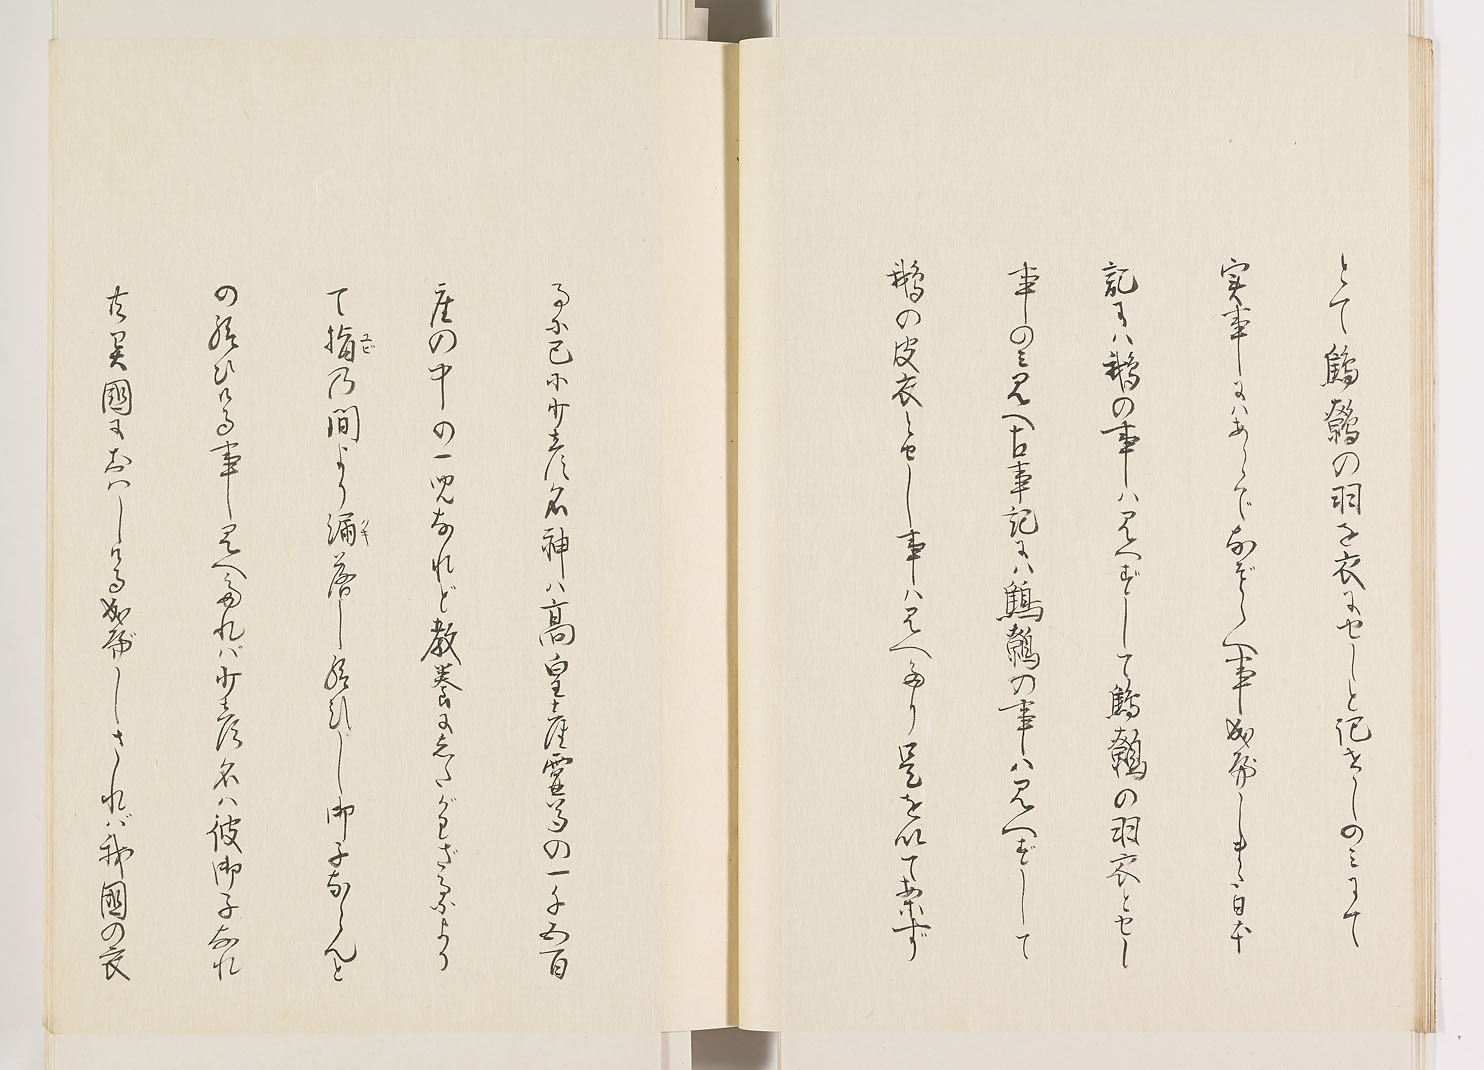 とて鷦鷯の羽を衣にせしと記せしのみにて
実事にハあらでなぞらへ事成べしまた日本
記にハ鵝の事ハ見へずして鷦鷯の羽衣とせし
事のミ見へ古事記にハ鷦鷯の事ハ見へずして
鵝の皮衣とせし事ハ見へたり是を以て案ず
るに已に少彦名神ハ高皇産霊尊の一千五百
座の中の一児なれど教養にしたがわざるにより
て指の間より漏落し給ひし御子ならんと
の給ひける事見へたれバ少彦名ハ彼御子なれ
共異國におはしける成べしされバ我國の衣
ユビ
クキ